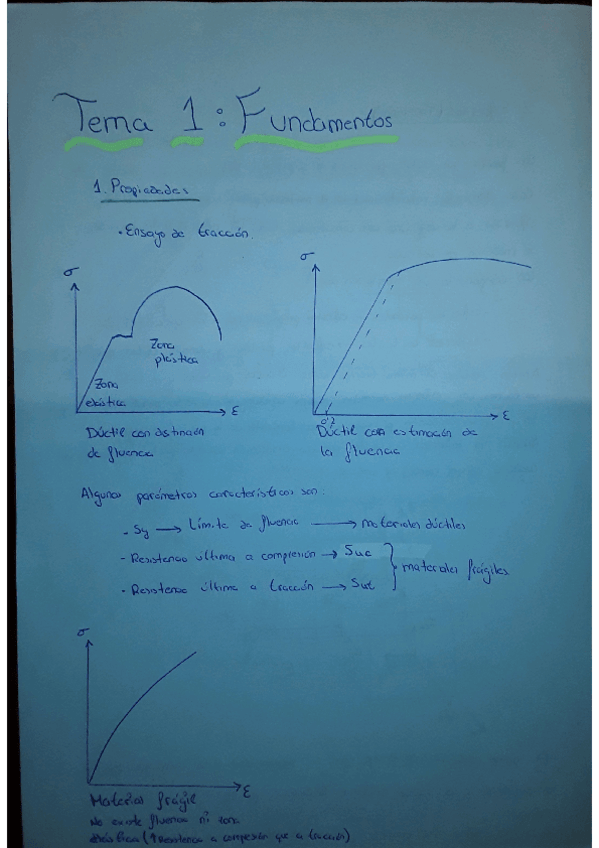 Tema 1: Fundamentos
1. Propiedades
• Ensayo de tracción.
σ
σ
Zona
plástica
Zona
elástica
ε
0'2
ε
Dúctil con distinción
de fluencia
Dúctil con estimación de
la fluencia
Algunos parámetros característicos son:
- Sy → Límite de fluencia → materiales dúctiles
- Resistencia última a compresión → Suc
- Resistencia última a tracción → Sut
materiales frágiles
σ
ε
Material frágil
No existe fluencia ni zona
plástica (↑ Resistencia a compresión que a tracción)